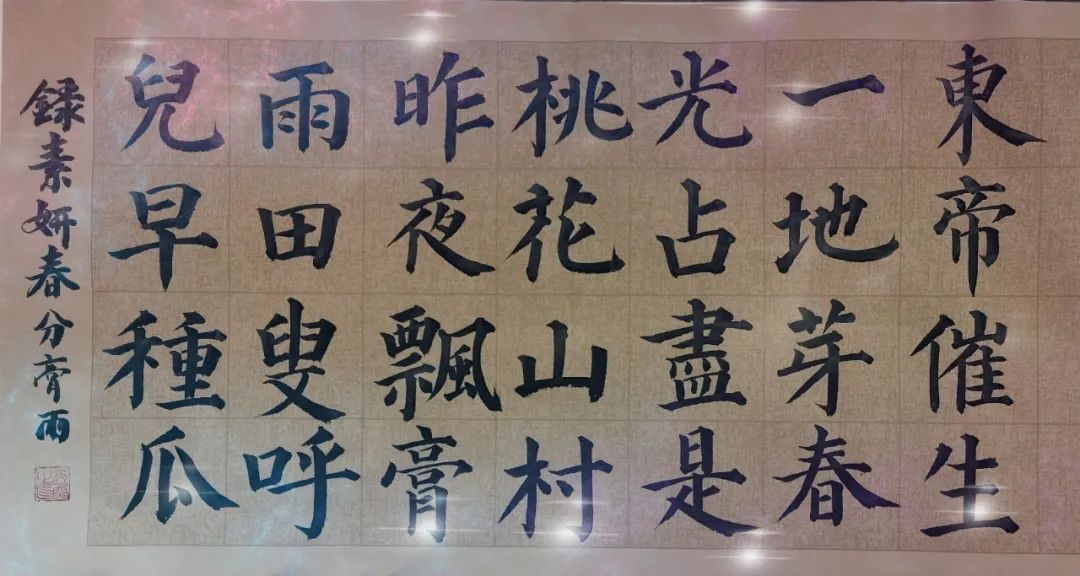 東帝催生
一地芽春
光占盡是
桃花山村
昨夜飄膏
雨田叟呼
兒早種瓜
録素妍春分膏雨